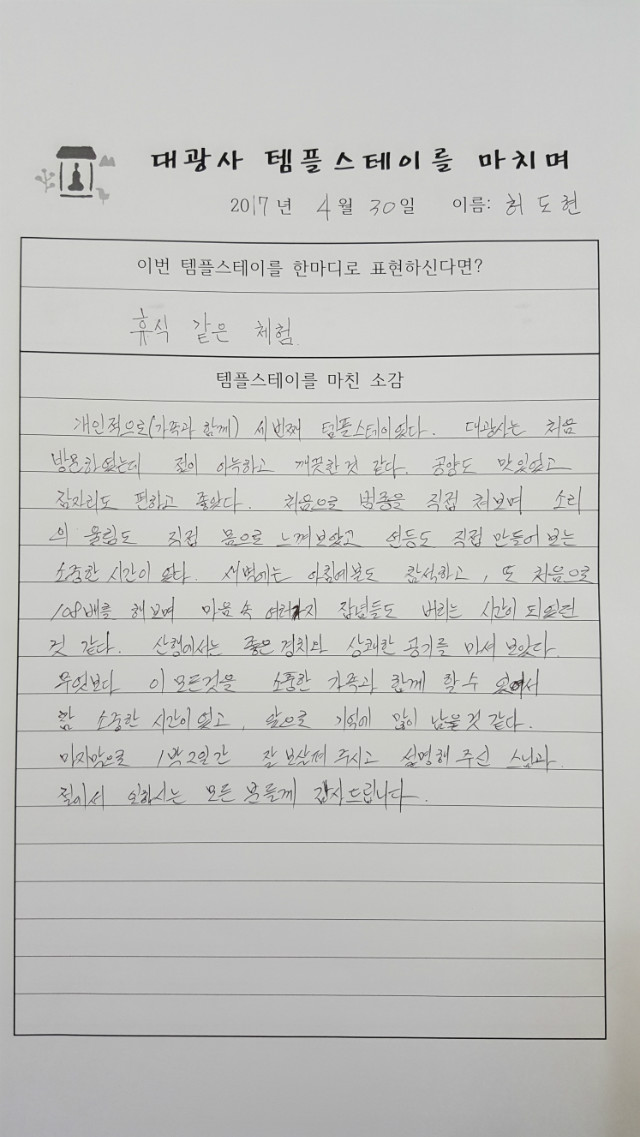 대광사 템플스테이를 마치며
2017년 4월 30일 이름: 허도현
이번 템플스테이를 한마디로 표현하신다면?
휴식 같은 체험.
템플스테이를 마친 소감
개인적으로(가족과 함께) 세번째 템플스테이였다. 대광사는 처음
방문하였는데 절이 아늑하고 깨끗한것 같다. 공양도 맛있었고
잠자리도 편하고 좋았다. 처음으로 범종을 직접 쳐보며 소리
의 울림도 직접 몸으로 느껴보았고 연등도 직접 만들어 보는
소중한 시간이 였다. 새벽에는 아침예불도 참석하고, 또 처음으로
108배를 해보며 마음 속 여러가지 잡념들도 버리는 시간이 되었던
것 같다. 산행에서는 좋은 경치와 상쾌한 공기를 마셔 보았다.
무엇보다 이 모든것을 소중한 가족과 함께 할 수 있어서
참 소중한 시간이 였고, 앞으로 기억에 많이 남을 것 같다.
마지막으로 1박2일간 잘 보살펴 주시고 설명해 주신 스님과
절에서 일하시는 모든 분들께 감사드립니다.